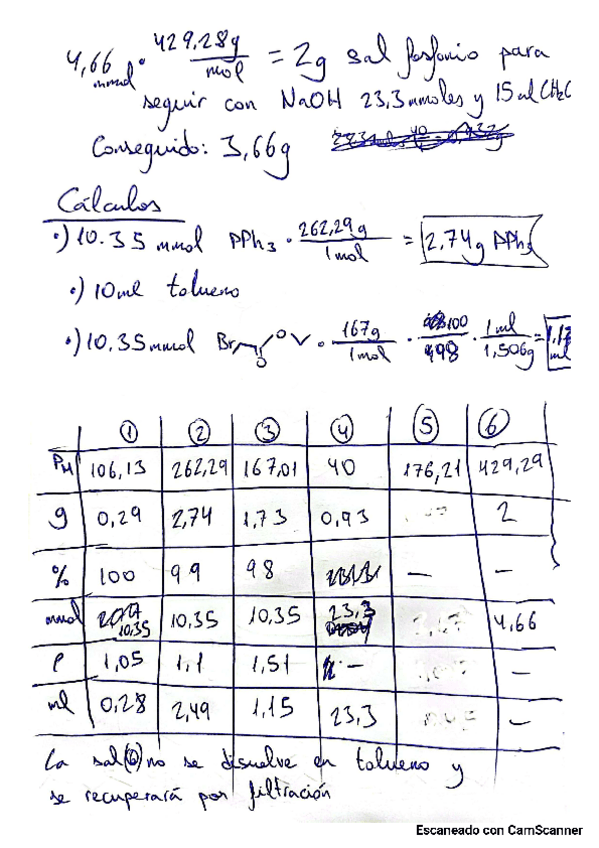 4,66 mmol · 429,28g/mol = 2g sal fosfonio para
seguir con NaOH 23,3 mmoles y 15 ml CH2C
Conseguido: 3,66g
Cálculos
·) 10.35 mmol PPh3 · 262,29g/1mol = 2,74g PPh3
·) 10ml tolueno
·) 10.35mmol Br O O · 167g/1mol · 100/98 · 1ml/1,506g = ml
① ② ③ ④ ⑤ ⑥
PM 106,13 262,29 167,01 40 176,21 429,29
g 0,29 2,74 1,73 0,93 2
% 100 99 98 — —
mmol 10,35 10,35 10,35 23,3 4,66
ρ 1,05 1,1 1,51 - —
ml 0,28 2,49 1,15 23,3 —
La sal(6) no se disuelve en tolueno y
se recuperará por filtración
Escaneado con CamScanner